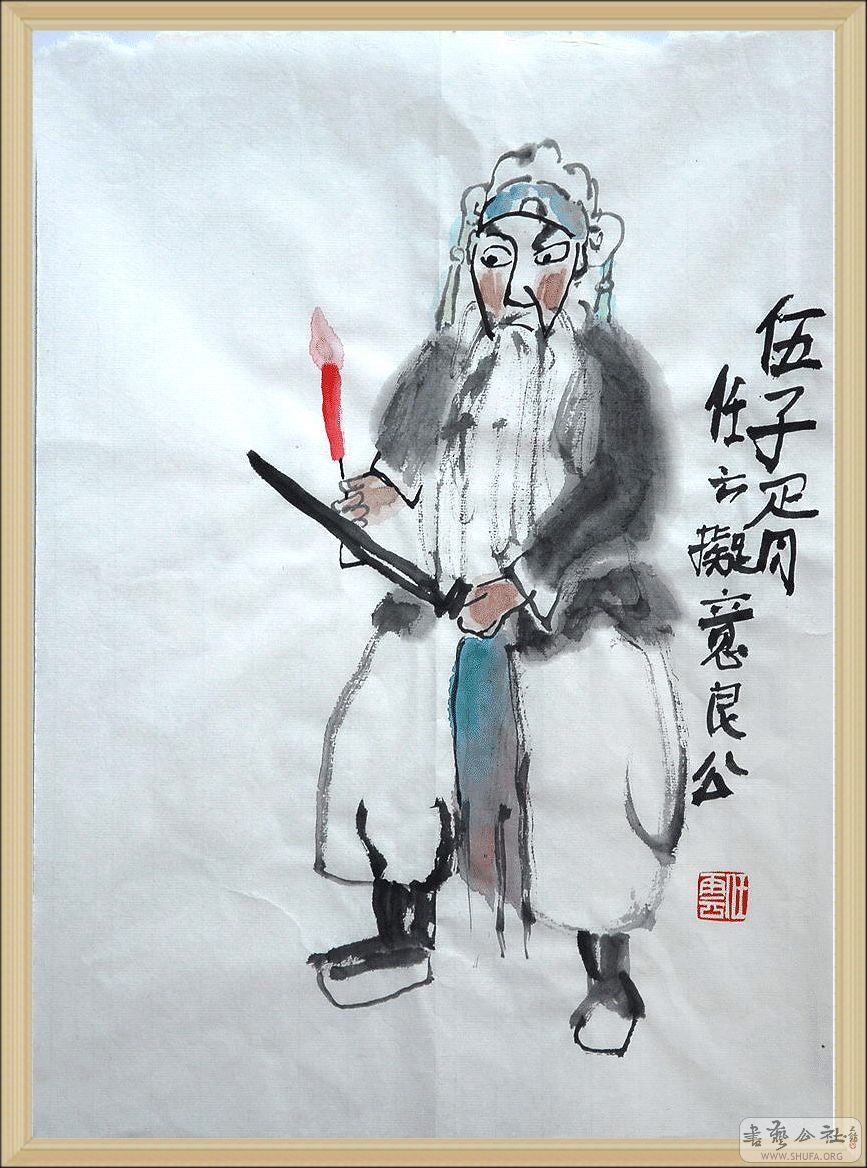 伍子胥
任云擬意良公
任雲
書藝公社
WWW.SHUFA.ORG